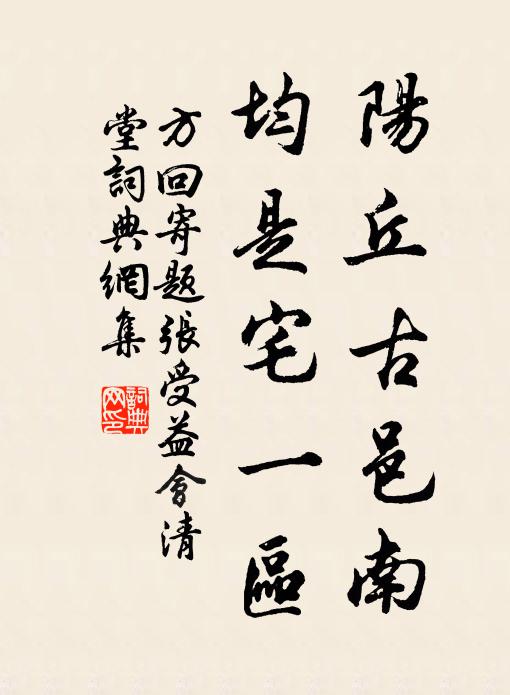 陽丘古邑南
均是宅一區
方回寄題張受益會清
堂詞典網集
詞典網印